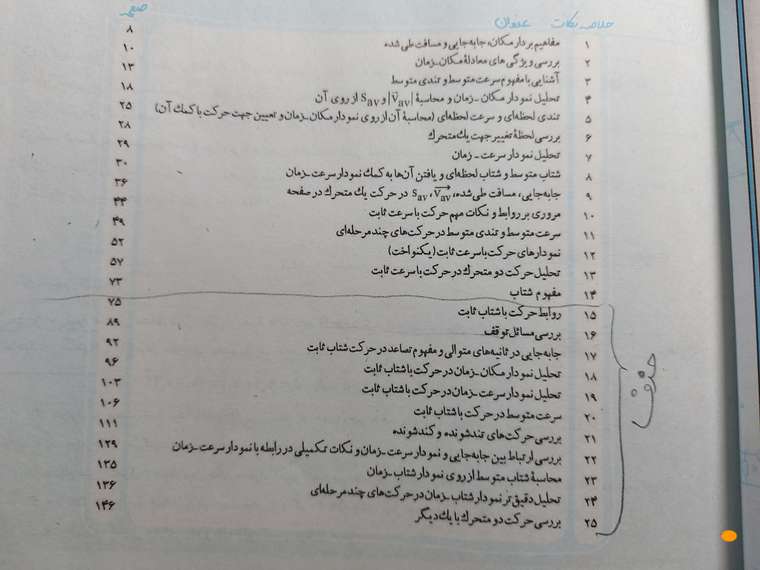 خلاصه نکات عنوان صفحه
۱ مفاهیم بردار مکان، جابه‌جایی و مسافت طی شده ۸
۲ بررسی ویژگی های معادلهٔ مکان-زمان ۱۰
۳ آشنایی با مفهوم سرعت متوسط و تندی متوسط ۱۳
۴ تحلیل نمودار مکان - زمان و محاسبهٔ |v̄av| و sav از روی آن ۱۸
۵ تندی لحظه‌ای و سرعت لحظه‌ای (محاسبهٔ آن از روی نمودار مکان-زمان و تعیین جهت حرکت با کمک آن) ۲۵
۶ بررسی لحظهٔ تغییر جهت یک متحرک ۲۸
۷ تحلیل نمودار سرعت - زمان ۲۹
۸ شتاب متوسط و شتاب لحظه‌ای و یافتن آن‌ها به کمک نمودار سرعت-زمان ۳۰
۹ جابه‌جایی، مسافت طی شده، v⃗av، sav در حرکت یک متحرک در صفحه ۳۶
۱۰ مروری بر روابط و نکات مهم حرکت با سرعت ثابت ۴۴
۱۱ سرعت متوسط و تندی متوسط در حرکت‌های چند مرحله‌ای ۴۹
۱۲ نمودارهای حرکت با سرعت ثابت (یکنواخت) ۵۲
۱۳ تحلیل حرکت دو متحرک در حرکت با سرعت ثابت ۵۷
۱۴ مفهوم شتاب ۷۳
۱۵ روابط حرکت با شتاب ثابت ۷۵
۱۶ بررسی مسائل توقف ۸۹
۱۷ جابه‌جایی در ثانیه‌های متوالی و مفهوم تصاعد در حرکت شتاب ثابت ۹۲
۱۸ تحلیل نمودار مکان-زمان در حرکت با شتاب ثابت ۹۶
۱۹ تحلیل نمودار سرعت-زمان در حرکت با شتاب ثابت ۱۰۳
۲۰ سرعت متوسط در حرکت با شتاب ثابت ۱۰۶
۲۱ بررسی حرکت‌های تندشونده و کندشونده ۱۱۱
۲۲ بررسی ارتباط بین جابه‌جایی و نمودار سرعت-زمان و نکات تکمیلی در رابطه با نمودار سرعت-زمان ۱۲۹
۲۳ محاسبهٔ شتاب متوسط از روی نمودار شتاب-زمان ۱۳۵
۲۴ تحلیل دقیق‌تر نمودار شتاب-زمان در حرکت‌های چند مرحله‌ای ۱۳۶
۲۵ بررسی حرکت دو متحرک با یک دیگر ۱۴۶
حذف